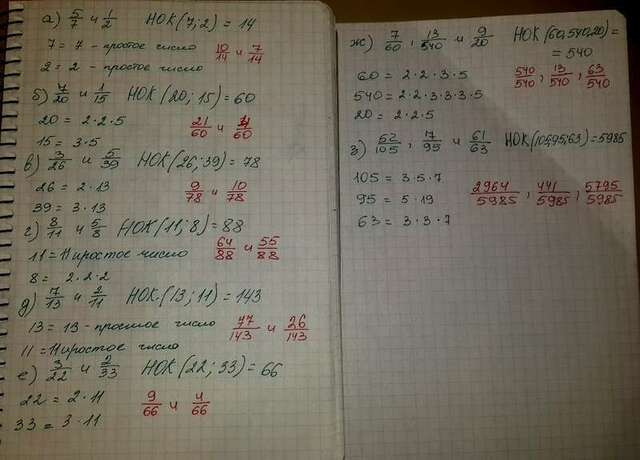 а) 5/7 и 1/2 НОК(7; 2) = 14
7 = 7 - простое число 10/14 и 7/14
2 = 2 - простое число
б) 7/20 и 1/15 НОК(20; 15) = 60
20 = 2·2·5 21/60 и 4/60
15 = 3·5
в) 3/26 и 5/39 НОК(26; 39) = 78
26 = 2·13 9/78 и 10/78
39 = 3·13
г) 8/11 и 5/8 НОК(11; 8) = 88
11 = 11 простое число 64/88 и 55/88
8 = 2·2·2
д) 7/13 и 2/11 НОК(13; 11) = 143
13 = 13 - простое число 77/143 и 26/143
11 = 11 простое число
е) 3/22 и 2/33 НОК(22; 33) = 66
22 = 2·11 9/66 и 4/66
33 = 3·11
ж) 7/60, 13/540 и 9/20 НОК(60,540,20) =
= 540
60 = 2·2·3·5 540/540, 13/540, 63/540
540 = 2·2·3·3·3·5
20 = 2·2·5
з) 52/105, 17/95 и 61/63 НОК(105,95,63) = 5985
105 = 3·5·7 2964/5985, 441/5985, 5795/5985
95 = 5·19
63 = 3·3·7